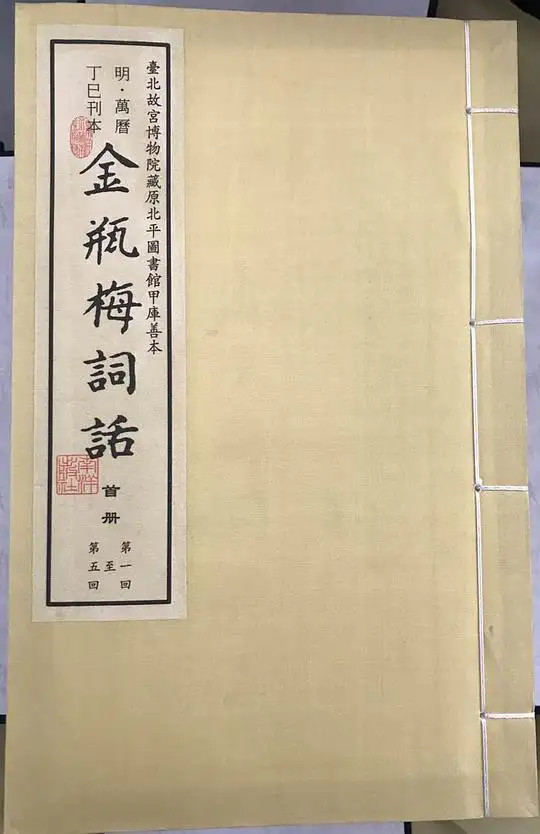 臺北故宮博物院藏原北平圖書館甲庫善本
明·萬曆
丁巳刊本
金瓶梅詞話
首册
第一回
至
第五回
南洋